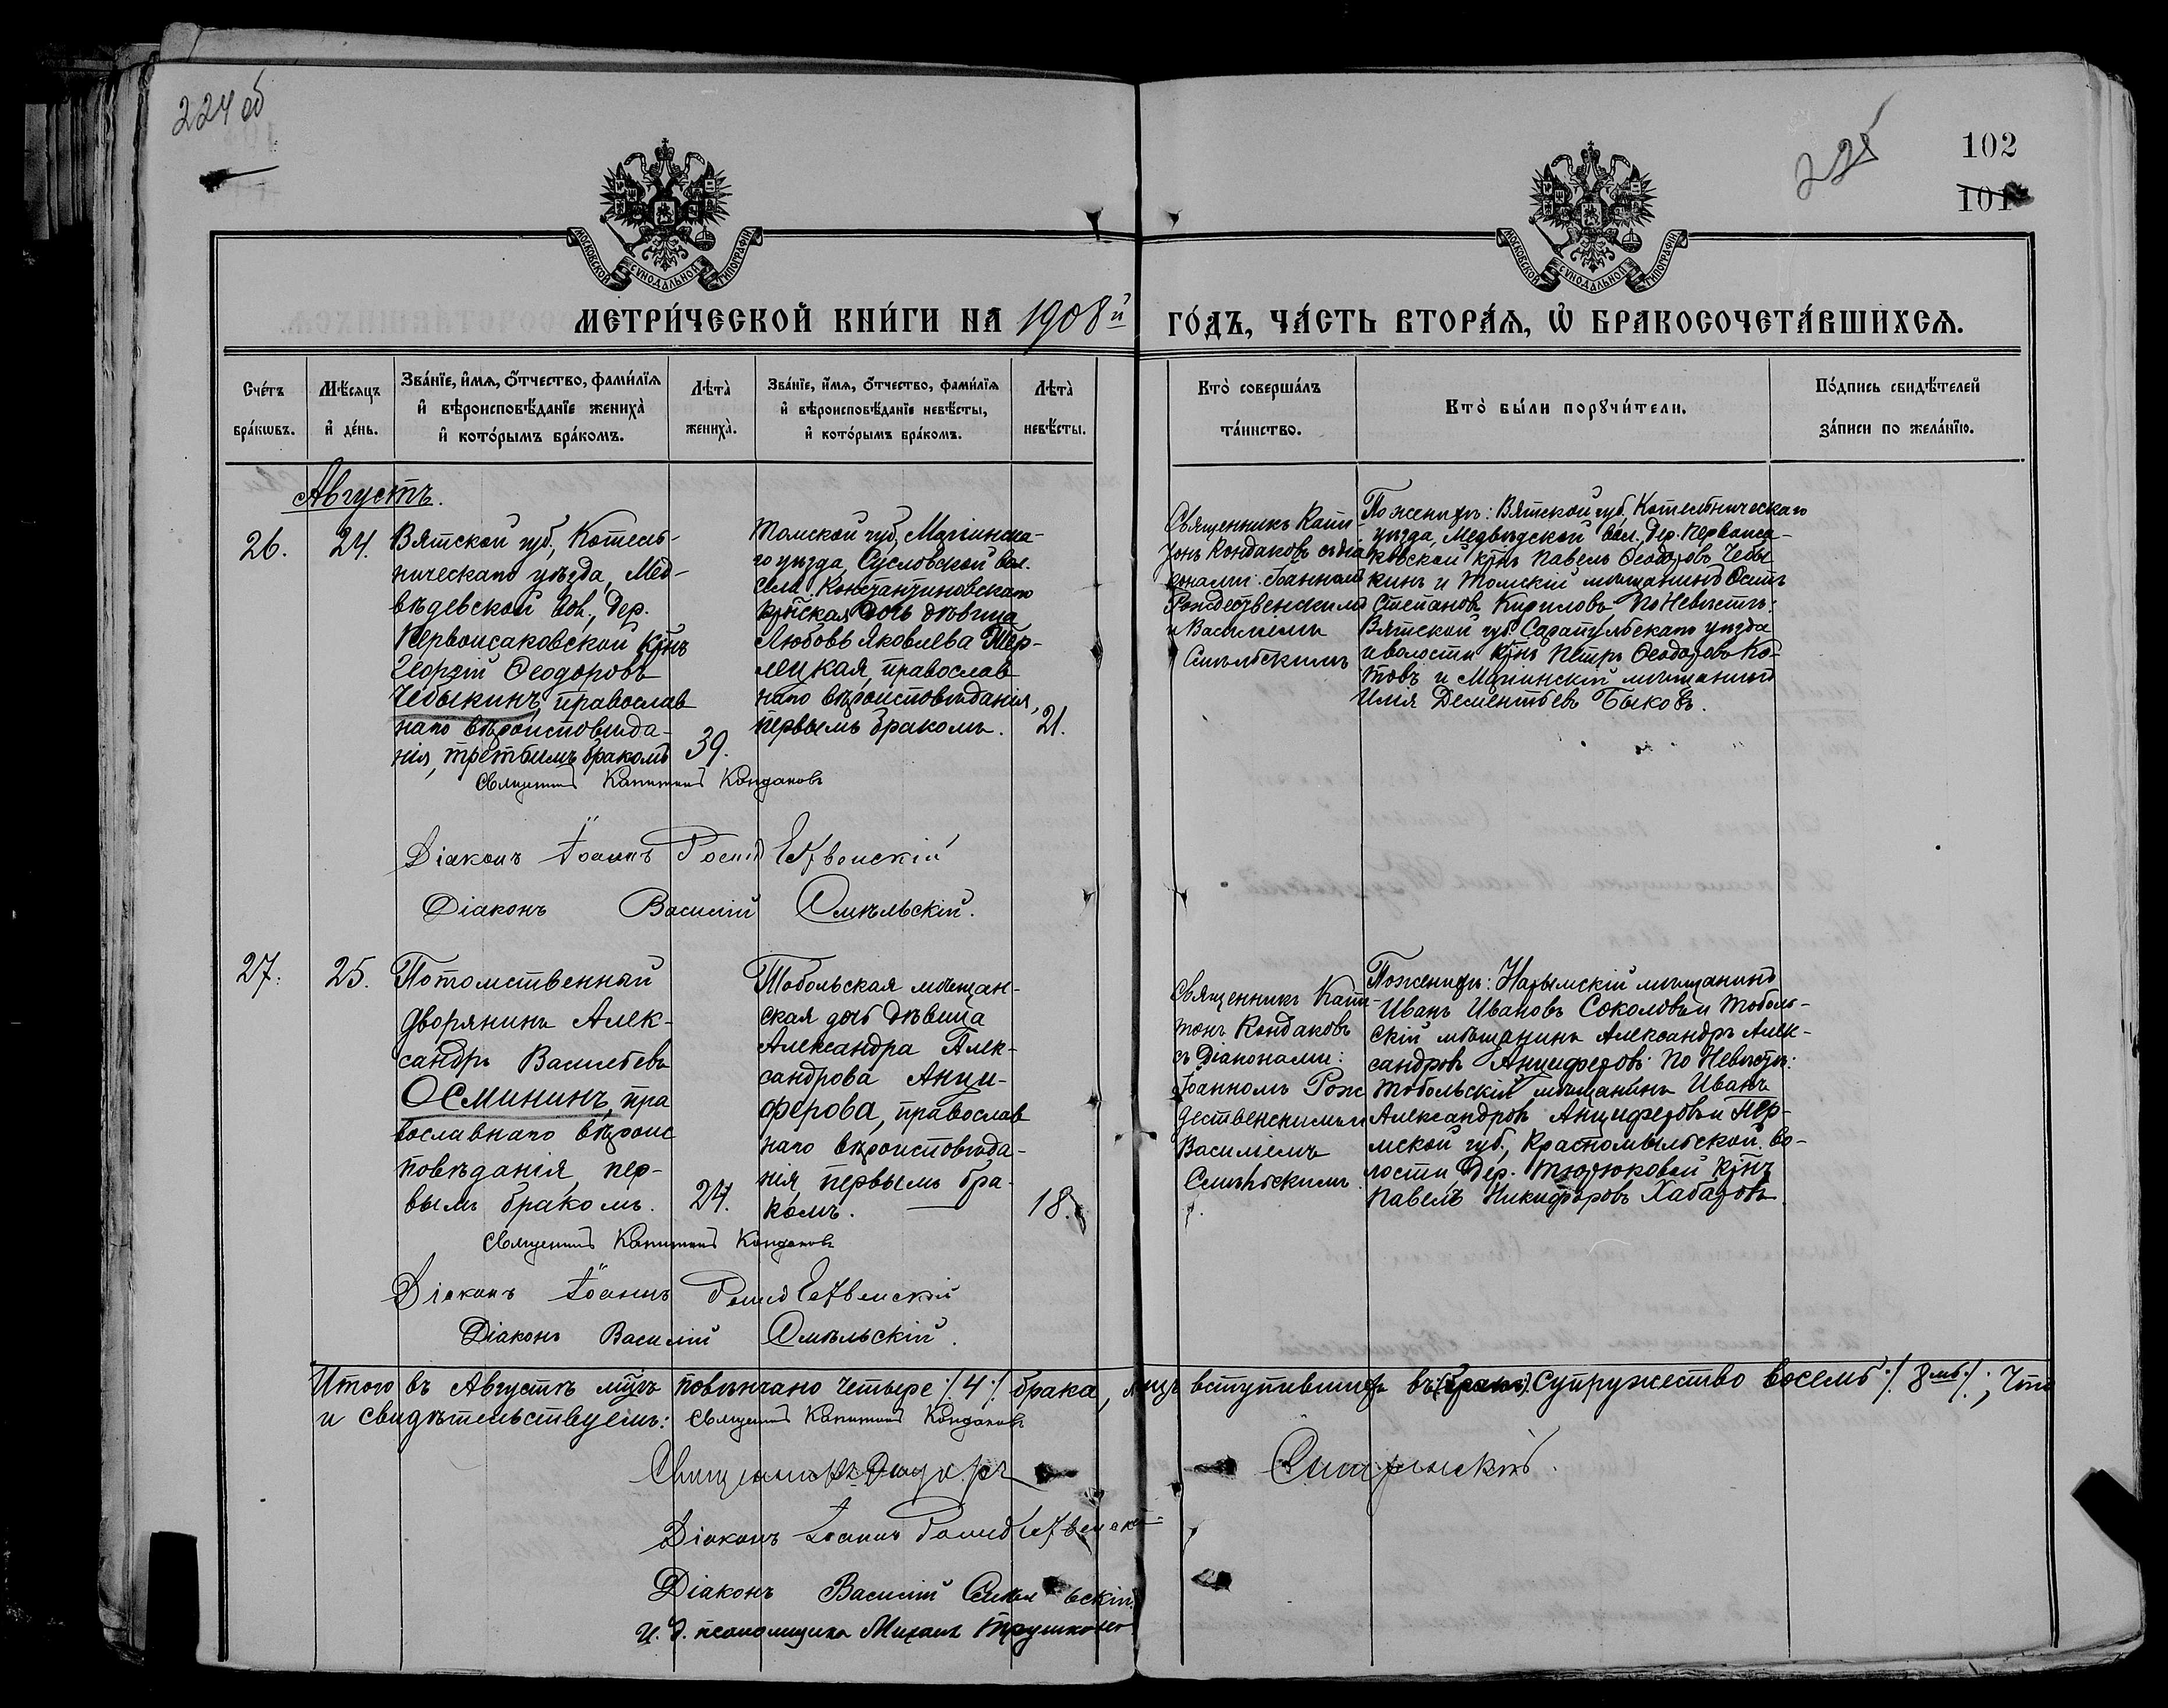 224 об
225
102
101
МОСКОВСКОЙ СѴНОДАЛЬНОЙ ТИПОГРАФІИ
МОСКОВСКОЙ СѴНОДАЛЬНОЙ ТИПОГРАФІИ
МЕТРИ́ЧЕСКОЙ КНИ́ГИ НА 1908й
ГО́ДЪ, ЧА́СТЬ ВТОРА́Я, Ѿ БРАКОСОЧЕТА́ВШИХСѦ.
Сче́тъ
бра́кѡвъ.
Мѣ́сяцъ
и҆ де́нь.
Зва́нїе, и҆́мѧ, ѻ҆́тчество, фами́лїѧ
и҆ вѣроисповѣ́данїе жениха̀
и҆ кото́рымъ бра́комъ.
Лѣта̀
жениха̀.
Зва́нїе, и҆́мѧ, ѻ҆́тчество, фами́лїѧ
и҆ вѣроисповѣ́данїе невѣ́сты,
и҆ кото́рымъ бра́комъ.
Лѣта̀
невѣ́сты.
Кто̀ соверша́лъ
та́инство.
Кто̀ бы́ли порꙋчи́тели.
По́дпись свидѣ́телей
за́писи по жела́нїю.
Августъ.
26.
24.
Вятской губ., Котель-
ническаго уѣзда, Мед-
вѣдевской вол., дер.
Первоисаковской крнъ
Георгій Ѳеодоровъ
Чебыкинъ, православ
наго вѣроисповѣда-
нія, третьимъ бракомъ
39.
Томской губ., Маріинска-
го уѣзда, Сусловской вол.
села Константиновскаго
крнская дочь дѣвица
Любовь Яковлева Тер-
лецкая, православ
наго вѣроисповѣданія,
первымъ бракомъ.
21.
Священникъ Капи-
тонъ Кондаковъ съ діа
конами: Іоанномъ
Рождественскимъ
и Василіемъ
Смѣльскимъ
По женихѣ: Вятской губ., Котельническаго
уѣзда, Медвѣдской вол., дер. Первоиса-
ковской крнъ Павелъ Ѳеодоровъ Чебы
кинъ и Томскій мѣщанинъ Осипъ
Степановъ Кириловъ. По Невѣстѣ:
Вятской губ. Сарапульскаго уѣзда
и волости крнъ Петръ Ѳеодоровъ Ко-
товъ и Маріинскій мѣщанинъ
Илія Дементьевъ Быковъ.
Священникъ Капитонъ Кондаковъ
Діаконъ Іоаннъ Рождественскій
Діаконъ Василій Смѣльскій.
27.
25.
Потомственный
дворянинъ Алек-
сандръ Васильевъ
Осмининъ, пра
вославнаго вѣроис
повѣданія, пер-
вымъ бракомъ.
24.
Тобольская мѣщан-
ская дочь дѣвица
Александра Алек-
сандрова Анци-
ферова, православ
наго вѣроисповѣда-
нія, первымъ бра-
комъ.
18.
Священникъ Капи-
тонъ Кондаковъ
съ діаконами:
Іоанномъ Рож
дественскимъ и
Василіемъ
Смѣльскимъ.
По женихѣ: Нарымскій мѣщанинъ
Иванъ Ивановъ Соколовъ и Тоболь-
скій мѣщанинъ Александръ Алек-
сандровъ Анциферовъ. По Невѣстѣ:
Тобольскій мѣщанинъ Иванъ
Александровъ Анциферовъ и Пер-
мской губ., Красномыльской во-
лости, дер. Тюрюковой крнъ
Павелъ Никифоровъ Хабаровъ
Священникъ Капитонъ Кондаковъ
Діаконъ Іоаннъ Рождественскій
Діаконъ Василій Смѣльскій.
Итого въ Августѣ мцѣ повѣнчано четыре /4/ брака, лицъ вступившихъ въ (бракъ) супружество восемь /8мь/; Что
и свидѣтельствуемъ: Священникъ Капитонъ Кондаковъ
Священникъ
Діаконъ Іоаннъ Рождественскій
Діаконъ Василій Смѣльскій.
И. д. псаломщика Михаилъ